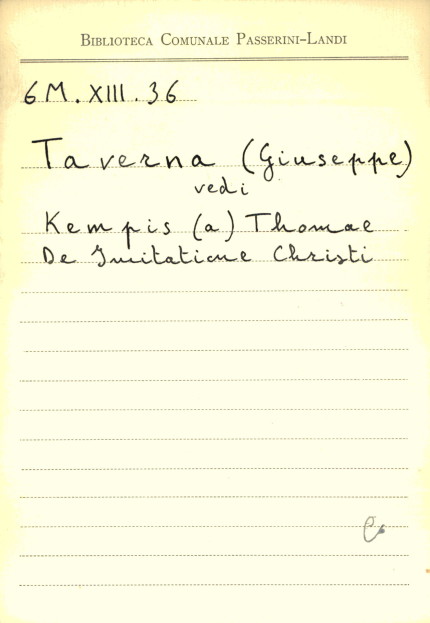 BIBLIOTECA COMUNALE PASSERINI-LANDI
6M.XIII.36
Taverna (Giuseppe)
vedi
Kempis (a) Thomae
De Imitatione Christi